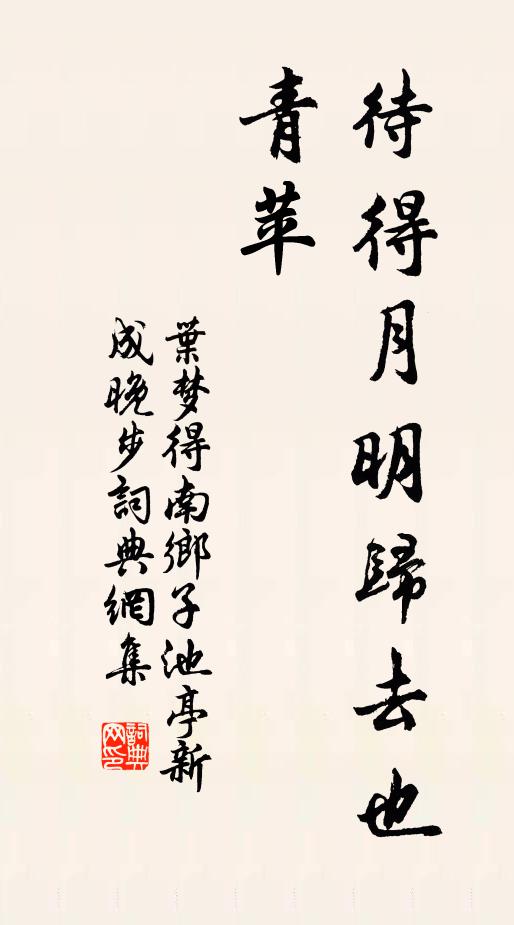 待得月明歸去也
青苹
葉梦得南鄉子池亭新
成晚步詞典網集
詞典网印